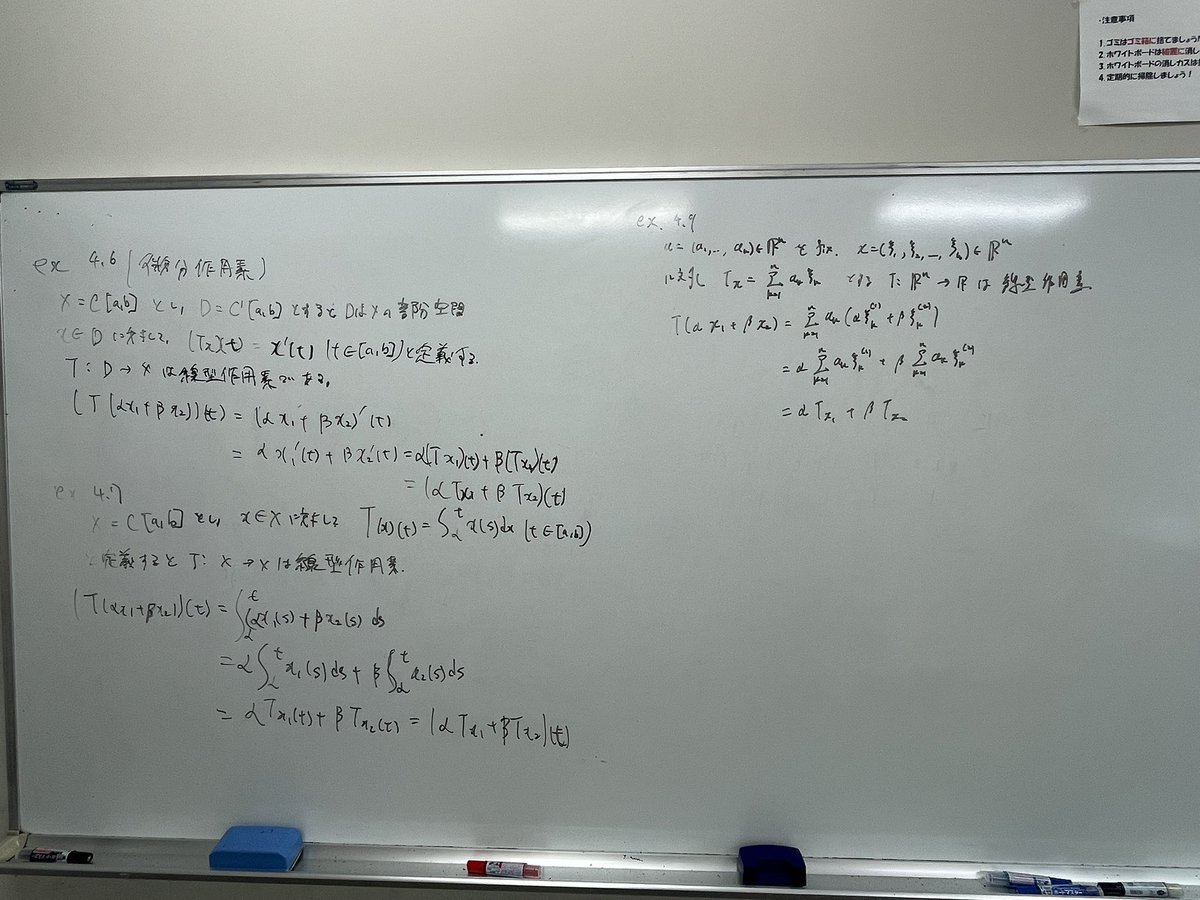 ・注意事項
1.ゴミはゴミ箱に捨てましょう!
2.ホワイトボードは綺麗に消し
3.ホワイトボードの消しカスは
4.定期的に掃除しましょう!
ex 4.6 (微分作用素)
X = C[a,b] とし, D = C'[a,b] とすると DはXの部分空間
x∈D に対して, (Tx)(t) = x'(t) (t∈[a,b]) と定義する.
T: D → X は線型作用素である.
(T(αx₁+βx₂))(t) = (αx₁+βx₂)'(t)
= αx₁'(t) + βx₂'(t) = α(Tx₁)(t) + β(Tx₂)(t)
= (αTx₁ + βTx₂)(t)
ex 4.7
X = C[a,b] とし, x∈X に対して T(x)(t) = ∫_α^t x(s)dx (t∈[a,b])
と定義すると T: X → X は線型作用素.
(T(αx₁+βx₂))(t) = ∫_α^t (αx₁(s) + βx₂(s) ds
= α∫_α^t x₁(s)ds + β∫_α^t x₂(s)ds
= αTx₁(t) + βTx₂(t) = (αTx₁+βTx₂)(t)
ex. 4.9
= (a₁,…, aₙ)∈ℝⁿ を x=(ξ₁,ξ₂,…,ξₙ)∈ℝⁿ
に対し Tx = Σ_{k=1}^n aₖξₖ とする T: ℝⁿ → ℝ は 線型作用素
T(αx₁+βx₂) = Σ_{k=1}^n aₖ(αξₖ^{(1)} + βξₖ^{(2)})
= αΣ_{k=1}^n aₖξₖ^{(1)} + βΣ_{k=1}^n aₖξₖ^{(2)}
= αTx₁ + βTx₂